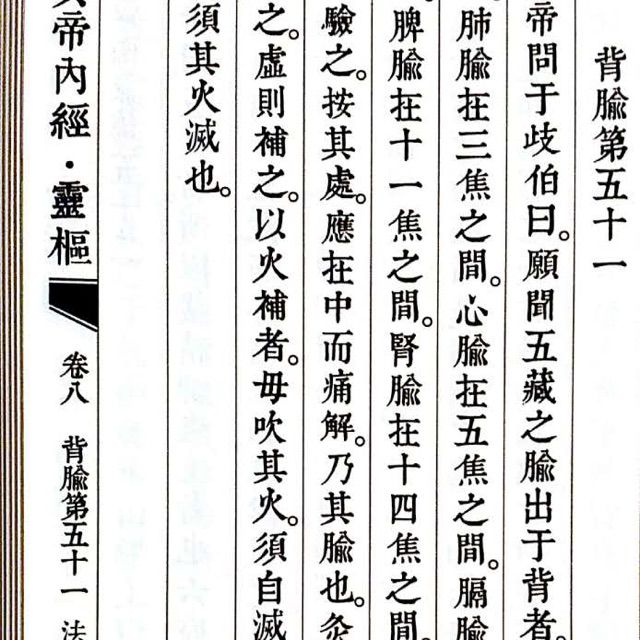 背腧第五十一
帝問于歧伯曰。願聞五藏之腧出于背者。
肺腧在三焦之間。心腧在五焦之間。膈腧
脾腧在十一焦之間。腎腧在十四焦之間。
驗之。按其處。應在中而痛解。乃其腧也。灸
之。虛則補之。以火補者。毋吹其火。須自滅
須其火滅也。
帝內經·靈樞 卷八 背腧第五十一 法